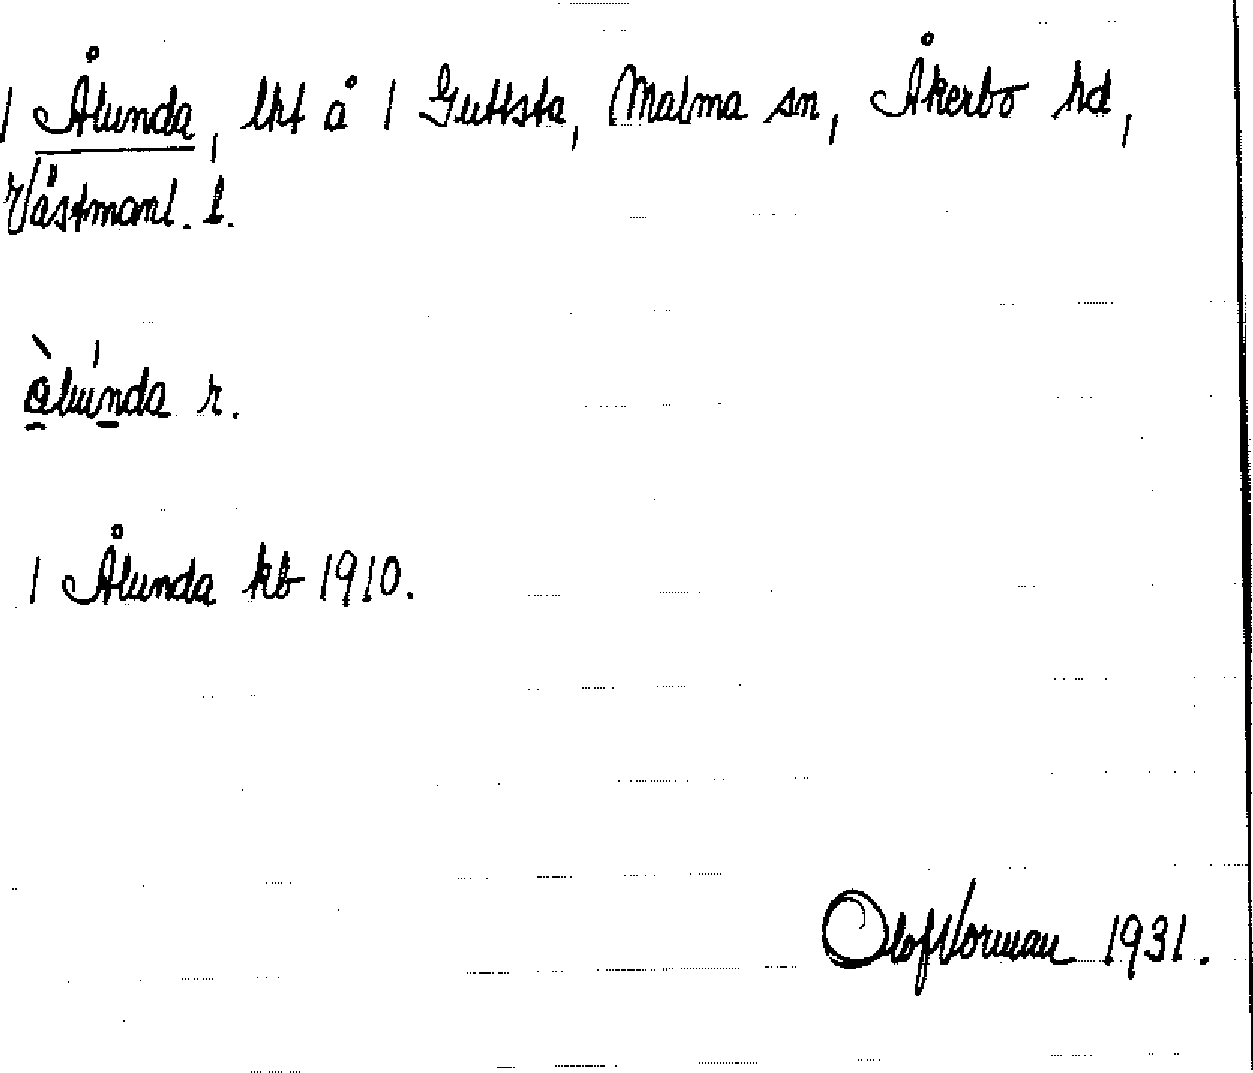 1 Ålunda, lht å 1 Guttsta, Malma sn, Åkerbo hd,
Västmanl. l.
ålunda r.
1 Ålunda kb 1910.
Olof Norman 1931.